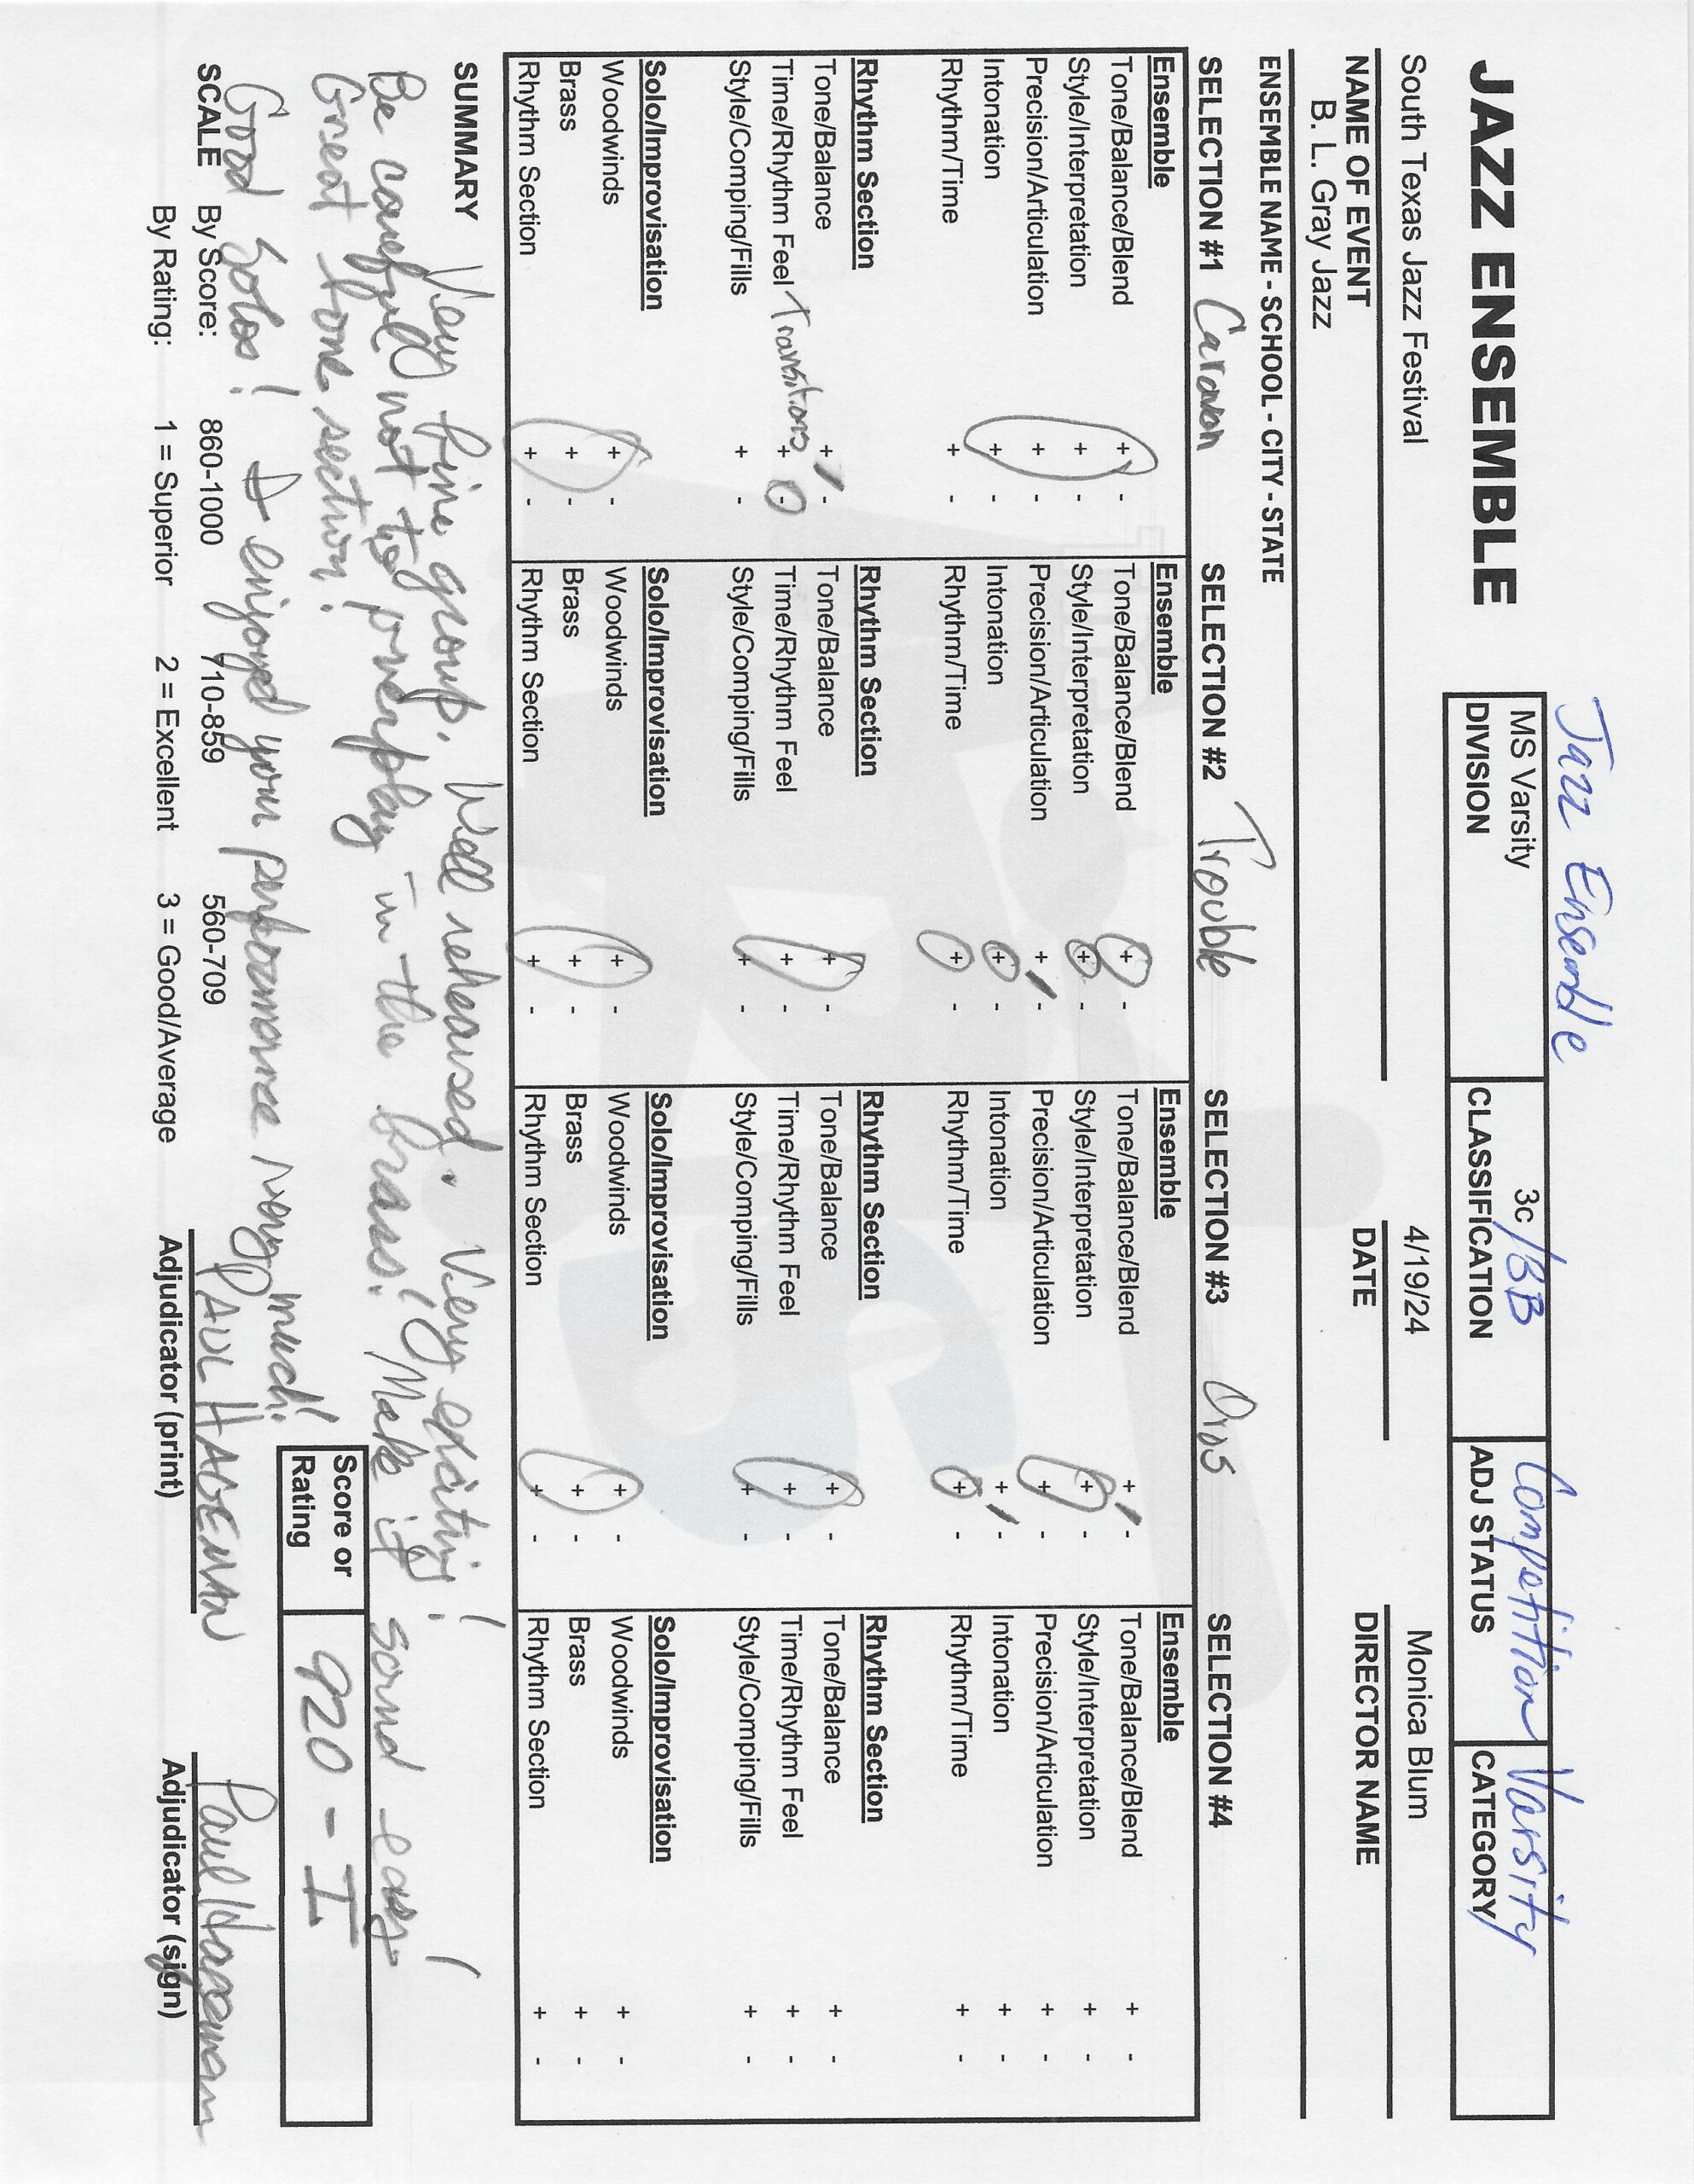 Jazz Ensemble
JAZZ ENSEMBLE
MS Varsity
DIVISION
3c/BB
CLASSIFICATION
Competition
ADJ STATUS
Varsity
CATEGORY
South Texas Jazz Festival
NAME OF EVENT
4/19/24
DATE
Monica Blum
DIRECTOR NAME
B. L. Gray Jazz
ENSEMBLE NAME - SCHOOL - CITY - STATE
SELECTION #1 Caravan
Ensemble
Tone/Balance/Blend + -
Style/Interpretation + -
Precision/Articulation + -
Intonation + -
Rhythm/Time + -
Rhythm Section
Tone/Balance + -
Time/Rhythm Feel Transitions + -
Style/Comping/Fills + -
Solo/Improvisation
Woodwinds + -
Brass + -
Rhythm Section + -
SELECTION #2 Trouble
Ensemble
Tone/Balance/Blend + -
Style/Interpretation + -
Precision/Articulation + -
Intonation + -
Rhythm/Time + -
Rhythm Section
Tone/Balance + -
Time/Rhythm Feel + -
Style/Comping/Fills + -
Solo/Improvisation
Woodwinds + -
Brass + -
Rhythm Section + -
SELECTION #3
Ensemble
Tone/Balance/Blend + -
Style/Interpretation + -
Precision/Articulation + -
Intonation + -
Rhythm/Time + -
Rhythm Section
Tone/Balance + -
Time/Rhythm Feel + -
Style/Comping/Fills + -
Solo/Improvisation
Woodwinds + -
Brass + -
Rhythm Section + -
SELECTION #4
Ensemble
Tone/Balance/Blend + -
Style/Interpretation + -
Precision/Articulation + -
Intonation + -
Rhythm/Time + -
Rhythm Section
Tone/Balance + -
Time/Rhythm Feel + -
Style/Comping/Fills + -
Solo/Improvisation
Woodwinds + -
Brass + -
Rhythm Section + -
SUMMARY Very fine group. Well rehearsed. Very exciting!
Be carefull not to overplay in the brass! Make it sound easy!
Great tone section!
Good Solos! I enjoyed your performance very much!
Score or Rating
920 - I
SCALE By Score: 860-1000 710-859 560-709
By Rating: 1 = Superior 2 = Excellent 3 = Good/Average
PAUL HAGEMAN
Adjudicator (print)
Paul Hageman
Adjudicator (sign)